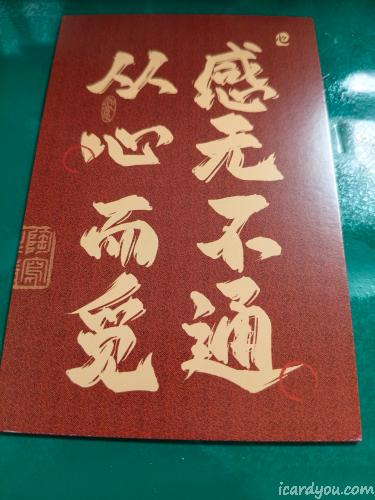 感无不通
从心而觅
icardyou.com